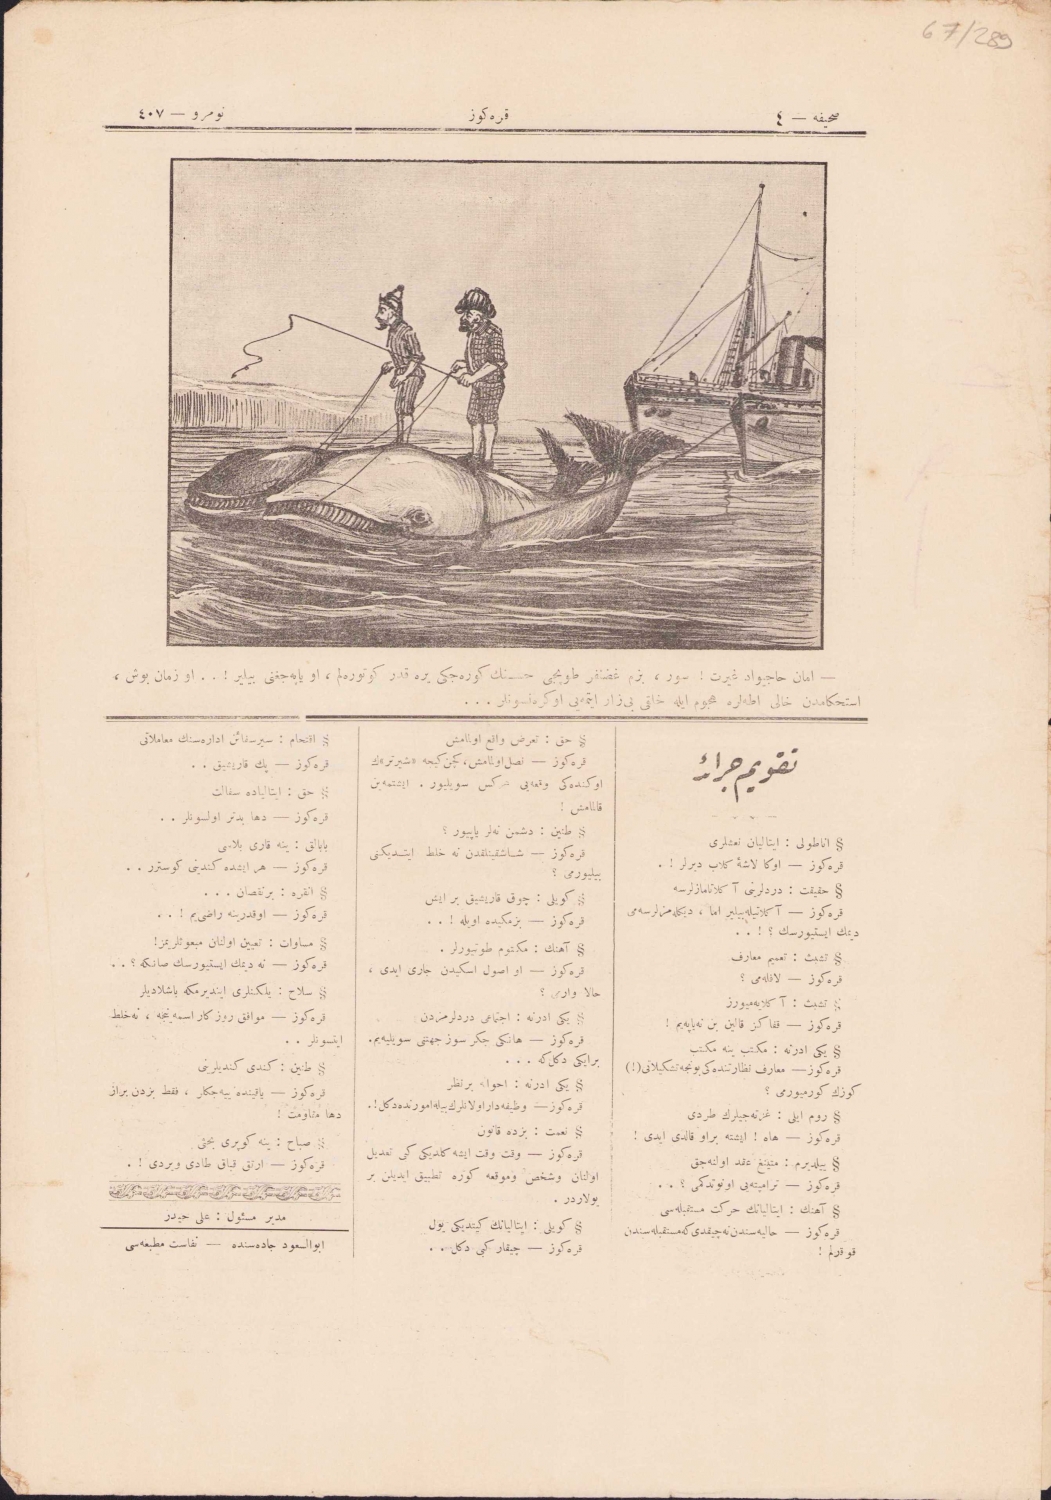 67/289
صحیفه — ٤
قره‌كوز
نومرو — ٤٠٧
— امان حاجیواد غیرت ! سور ، بزم غضنفر طوپجی حسنك كوره‌جكی یره قدر كوتوره‌لم ، او یاپه‌جغنی بیلیر ! . . او زمان بوش ،
استحكامدن خالی اطه‌لره هجوم ایله خلقی بی‌زار ایتمه‌یی اوكره‌نسونلر . . .
تقویم جرائد
§ اناطولی : ایتالیان نعشلری
قره‌كوز — اوكا لاشهٔ كلاب دیرلر ! .
§ حقیقت : دردلرینی آكلاتامازلرسه
قره‌كوز — آكلاتیله‌بیلیر اما ، دیكله‌مزلرسه‌می
دیمك ایستیورسك ؟ ! . .
§ تشبث : تعمیم معارف
قره‌كوز — لافله‌می ؟
§ تشبث : آكلایه‌میورز
قره‌كوز — قفاكز قالین بن نه‌یاپه‌یم !
§ یكی ادرنه : مكتب ینه مكتب
قره‌كوز — معارف نظارتنده‌كی بونجه تشكیلاتی (!)
كوزك كورمیورمی ؟
§ روم ایلی : غزته‌جیلرك طردی
قره‌كوز — هاه ! ایشته براو قالدی ایدی !
§ ییلدیرم : متینغ عقد اولنه‌جق
قره‌كوز — ترامیته‌یی اونوتدكمی ؟ . .
§ آهنك : ایتالیانك حركت مستقبله‌سی
قره‌كوز — حالیه‌سندن نه‌چیقدی كه مستقبله‌سندن
قورقه‌لم !
§ حق : تعرض واقع اولمامش
قره‌كوز — نصل اولمامش، كچن كیجه «شیرتر»ك
اوكنده‌كی وقعه‌یی هركس سویلیور . ایشتمه‌ین
قالمامش !
§ طنین : دشمن نه‌لر یاپیور ؟
قره‌كوز — شاشقینلقدن نه خلط ایتدیكنی
بیلیورمی ؟
§ كویلی : چوق قاریشیق بر ایش
قره‌كوز — بزمكیده اویله ! . .
§ آهنك : مكتوم طوتیورلر .
قره‌كوز — او اصول اسكیدن جاری ایدی ،
حالا وارمی ؟
§ یكی ادرنه : اجتماعی دردلرمزدن
قره‌كوز — هانكی جكر سوز جهتنی سویلیه‌یم.
برایكی دكل‌كه . . .
§ یكی ادرنه : احواله برنظر
قره‌كوز — وظیفه‌دار اولانلرك‌بیله امورنده‌دكل!.
§ نعمت : بزده قانون
قره‌كوز — وقت وقت ایشه كلدیكی كی تعدیل
اولنان وشخص وموقعه كوره تطبیق ایدیلن بر
یولاردر .
§ كویلی : ایتالیانك كیتدیكی یول
قره‌كوز — چیقار كبی دكل . .
§ اقتحام : سیرسفائن اداره‌سنك معاملاتی
قره‌كوز — پك قاریشیق . .
§ حق : ایتالیاده سفالت
قره‌كوز — دها بدتر اولسونلر . .
بابالق : ینه قاری بلاسی
قره‌كوز — هر ایشده كندینی كوسترر . .
§ انقره : برنقصان . . .
قره‌كوز — اوقدرینه راضی‌یم ! . .
§ مساوات : تعیین اولنان مبعوثلریمز!
قره‌كوز — نه دیمك ایستیورسك صانكه ؟ . .
§ سلاح : یلكنلری ایندیرمكه باشلادیلر
قره‌كوز — موافق روزكار اسمه‌ینجه ، نه‌خلط
ایتسونلر . .
§ طنین : كندی كندیلرینی
قره‌كوز — یاقینده ییه‌جكلر ، فقط بزدن براز
دها مقاومت !
§ صباح : ینه كوپری بحثی
قره‌كوز — ارتق قباق طادی ویردی ! .
مدیر مسئول : علی حیدر
ابوالسعود جاده‌سنده — نفاست مطبعه‌سی